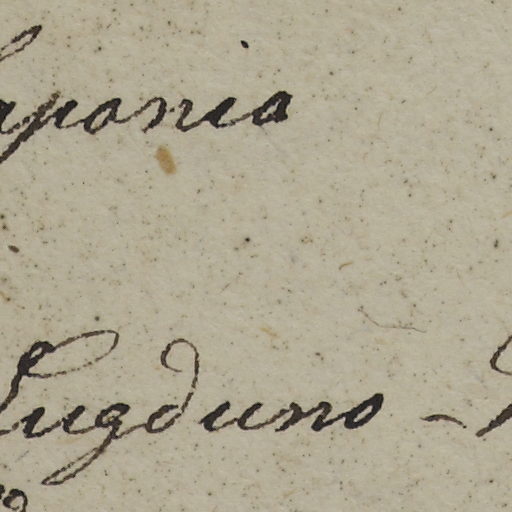 aponia
Lugduno -